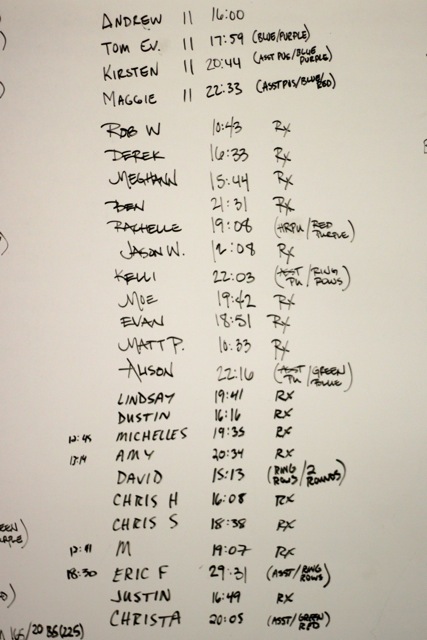 ANDREW 11 16:00
TOM EV. 11 17:59 (BLUE/PURPLE)
KIRSTEN 11 20:44 (ASST PUS/BLUE PURPLE)
MAGGIE 11 22:33 (ASST PUS/BLUE/RED)
ROB W 10:43 RX
DEREK 16:33 RX
MEGHANN 15:44 RX
BEN 21:31 RX
RACHELLE 19:08 (HRPU/RED PURPLE)
JASON W. 12:08 RX
KELLI 22:03 (ASST PU/RING ROWS)
MOE 19:42 RX
EVAN 18:51 RX
MATT P. 10:33 RX
ALISON 22:16 (ASST PU/GREEN BLUE)
LINDSAY 19:41 RX
DUSTIN 16:16 RX
12:45 MICHELLES 19:35 RX
AMY 20:34 RX
DAVID 15:13 (RING ROWS/2 ROUNDS)
CHRIS H 16:08 RX
CHRIS S 18:38 RX
M 19:07 RX
18:30 ERIC F 29:31 (ASST/RING ROWS)
JUSTIN 16:49 RX
CHRISTA 20:05 (ASST/GREEN RED)
165/20 BS(225)